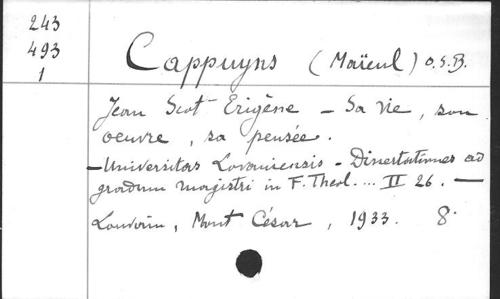 243
493
1
Cappuyns (Maïeul) O.S.B.
Jean Scot Erigène - Sa vie, son
oeuvre, sa pensée.
- Universitas Lovaniensis - Dissertationes ad
gradum magistri in F. Theol. ... II 26. -
Louvain, Mont César, 1933. 8°